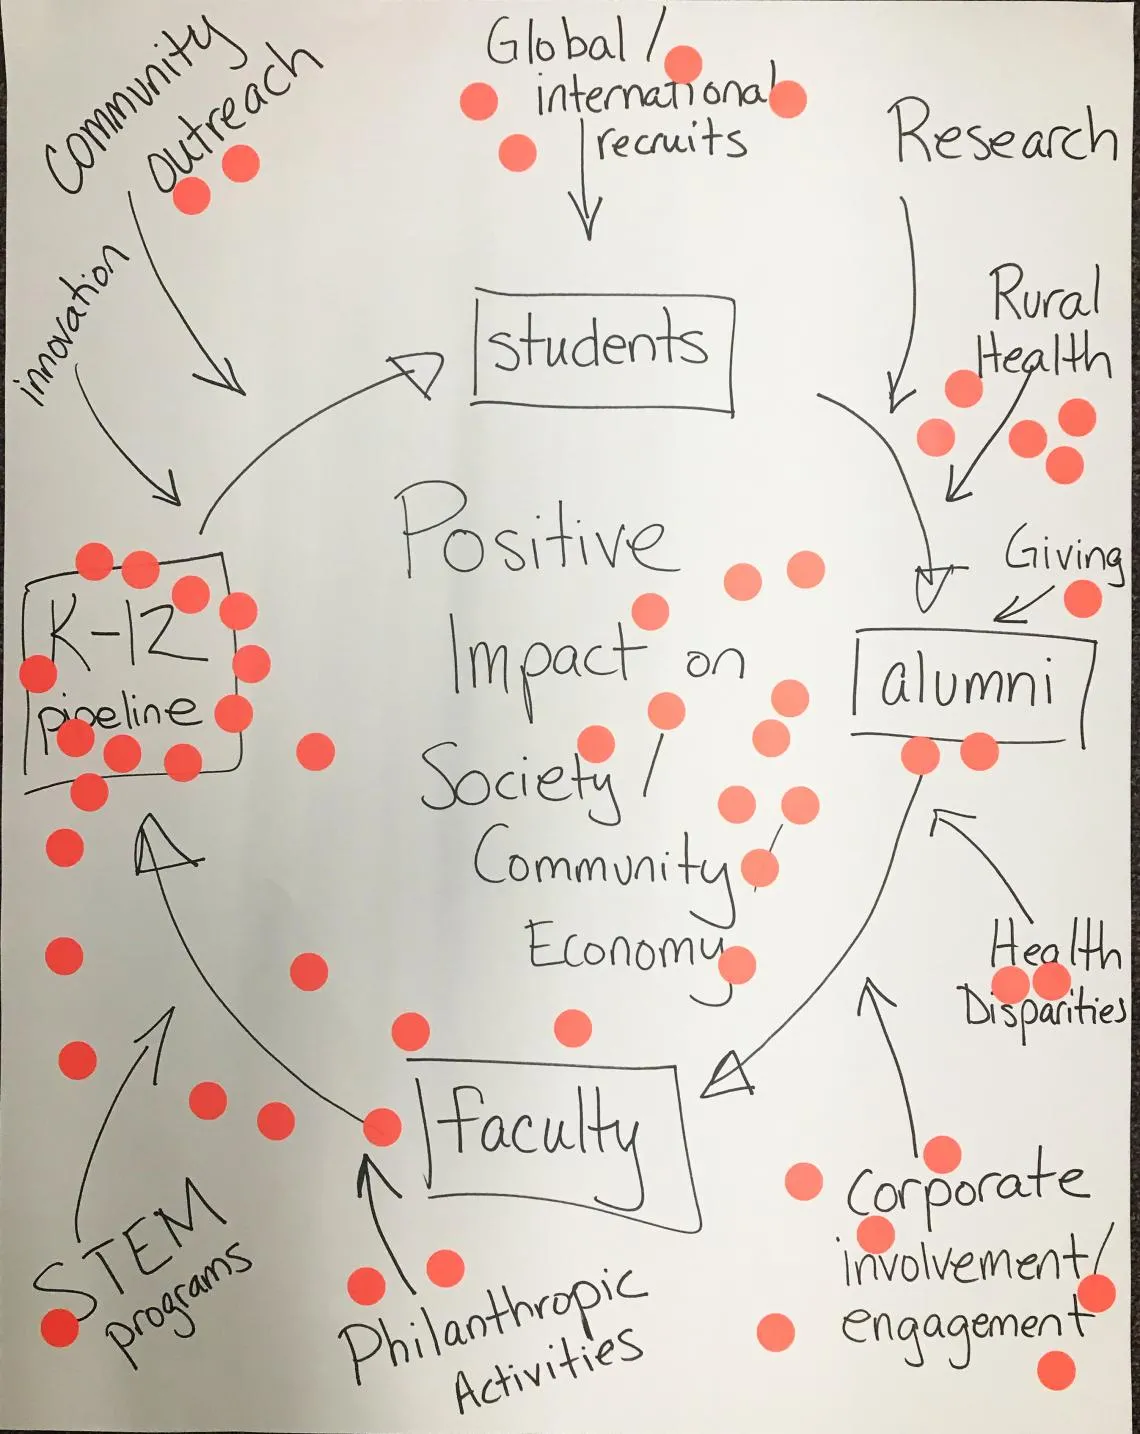 Community
outreach
Global /
international
recruits
Research
innovation
Rural
Health
students
Giving
Positive
Impact on
Society /
Community /
Economy
K-12
pipeline
alumni
Health
Disparities
faculty
STEM
programs
Philanthropic
Activities
Corporate
involvement/
engagement